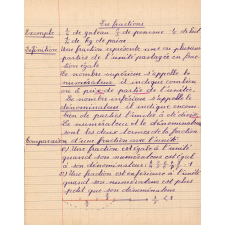 Les fractions
Exemple ½ de gateau ½ de pomme
de kg de poire
Définition Une fraction représente une ou plusieurs
parties de l'unité partagée en frac-
tion égale
Le nombre supérieur s'appelle le
numérateur, il indique combien
on a pris de partie de l'unité.
Le nombre inférieur s'appelle le
dénominateur et indique en com-
bien de parties l'unité a été divisée
Le numérateur et le dénominateur
sont les deux termes de la fraction
Comparaison d'une fraction avec l'unité
Une fraction est égale à l'unité
quand son numérateur est égal
à son dénominateur
Une fraction est inférieure à l'unité
quand son numérateur est plus
petit que son dénominateur